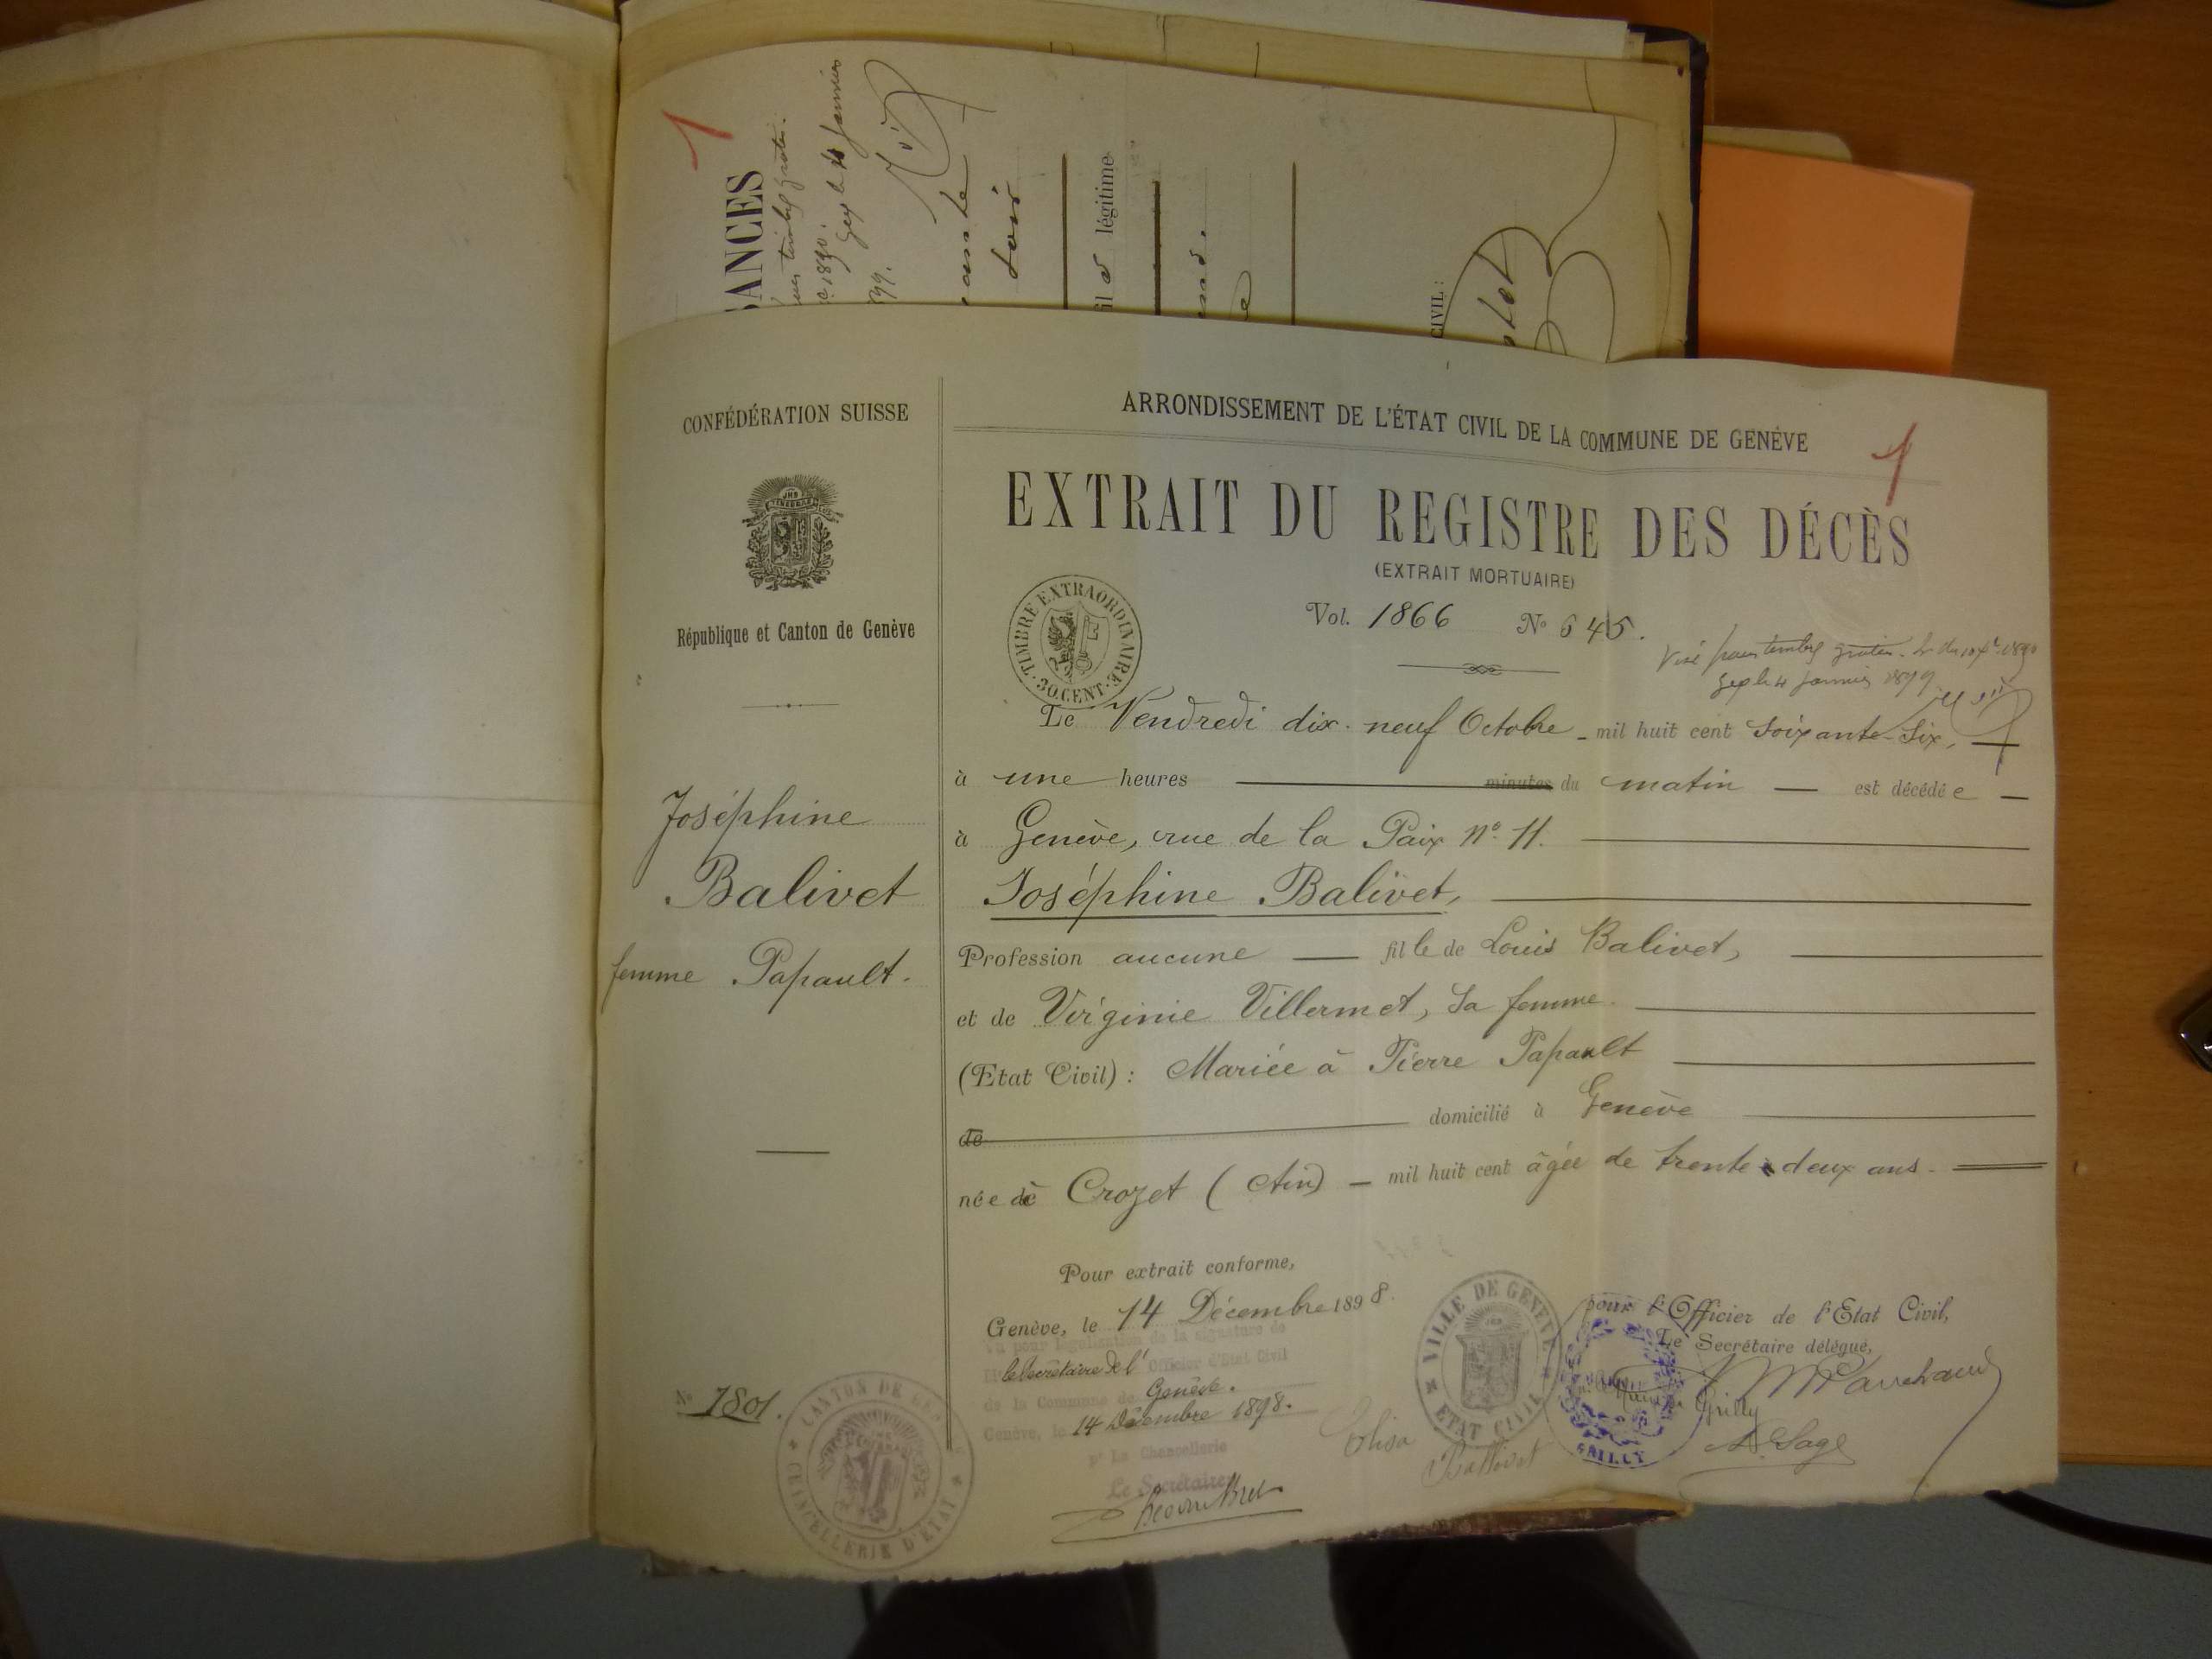 1
SANCES
légitime
soir
CIVIL:
CONFÉDÉRATION SUISSE
République et Canton de Genève
Joséphine
Balivet
femme Papault.
No 1801.
CANTON DE GENÈVE
CHANCELLERIE D'ETAT
ARRONDISSEMENT DE L'ÉTAT CIVIL DE LA COMMUNE DE GENÈVE
1
EXTRAIT DU REGISTRE DES DÉCÈS
(EXTRAIT MORTUAIRE)
TIMBRE EXTRAORDINAIRE
30. CENT.
Vol. 1866 No 645.
Visé pour timbre gratis. 1890
Gex le 4 janvier 1899
Le Vendredi dix-neuf Octobre - mil huit cent Soixante-Six,
à une heures minutes du matin est décédée
à Genève, rue de la Paix No 11.
Joséphine Balivet,
Profession aucune fille de Louis Balivet,
et de Virginie Villermet, sa femme.
(Etat Civil) : Mariée à Pierre Papault
de domicilié à Genève
née à Crozet (Ain) mil huit cent âgée de trente-deux ans.
Pour extrait conforme,
Genève, le 14 Décembre 1898.
Vu pour légalisation de la signature de
le Secrétaire de l'Officier d'Etat Civil
de la Commune de Genève.
Genève, le 14 Décembre 1898.
pr La Chancellerie
Le Secrétaire
VILLE DE GENÈVE
ETAT CIVIL
pour l'Officier de l'Etat Civil,
Le Secrétaire délégué,
Grilly
GRILLY
Elisa
Ballivet